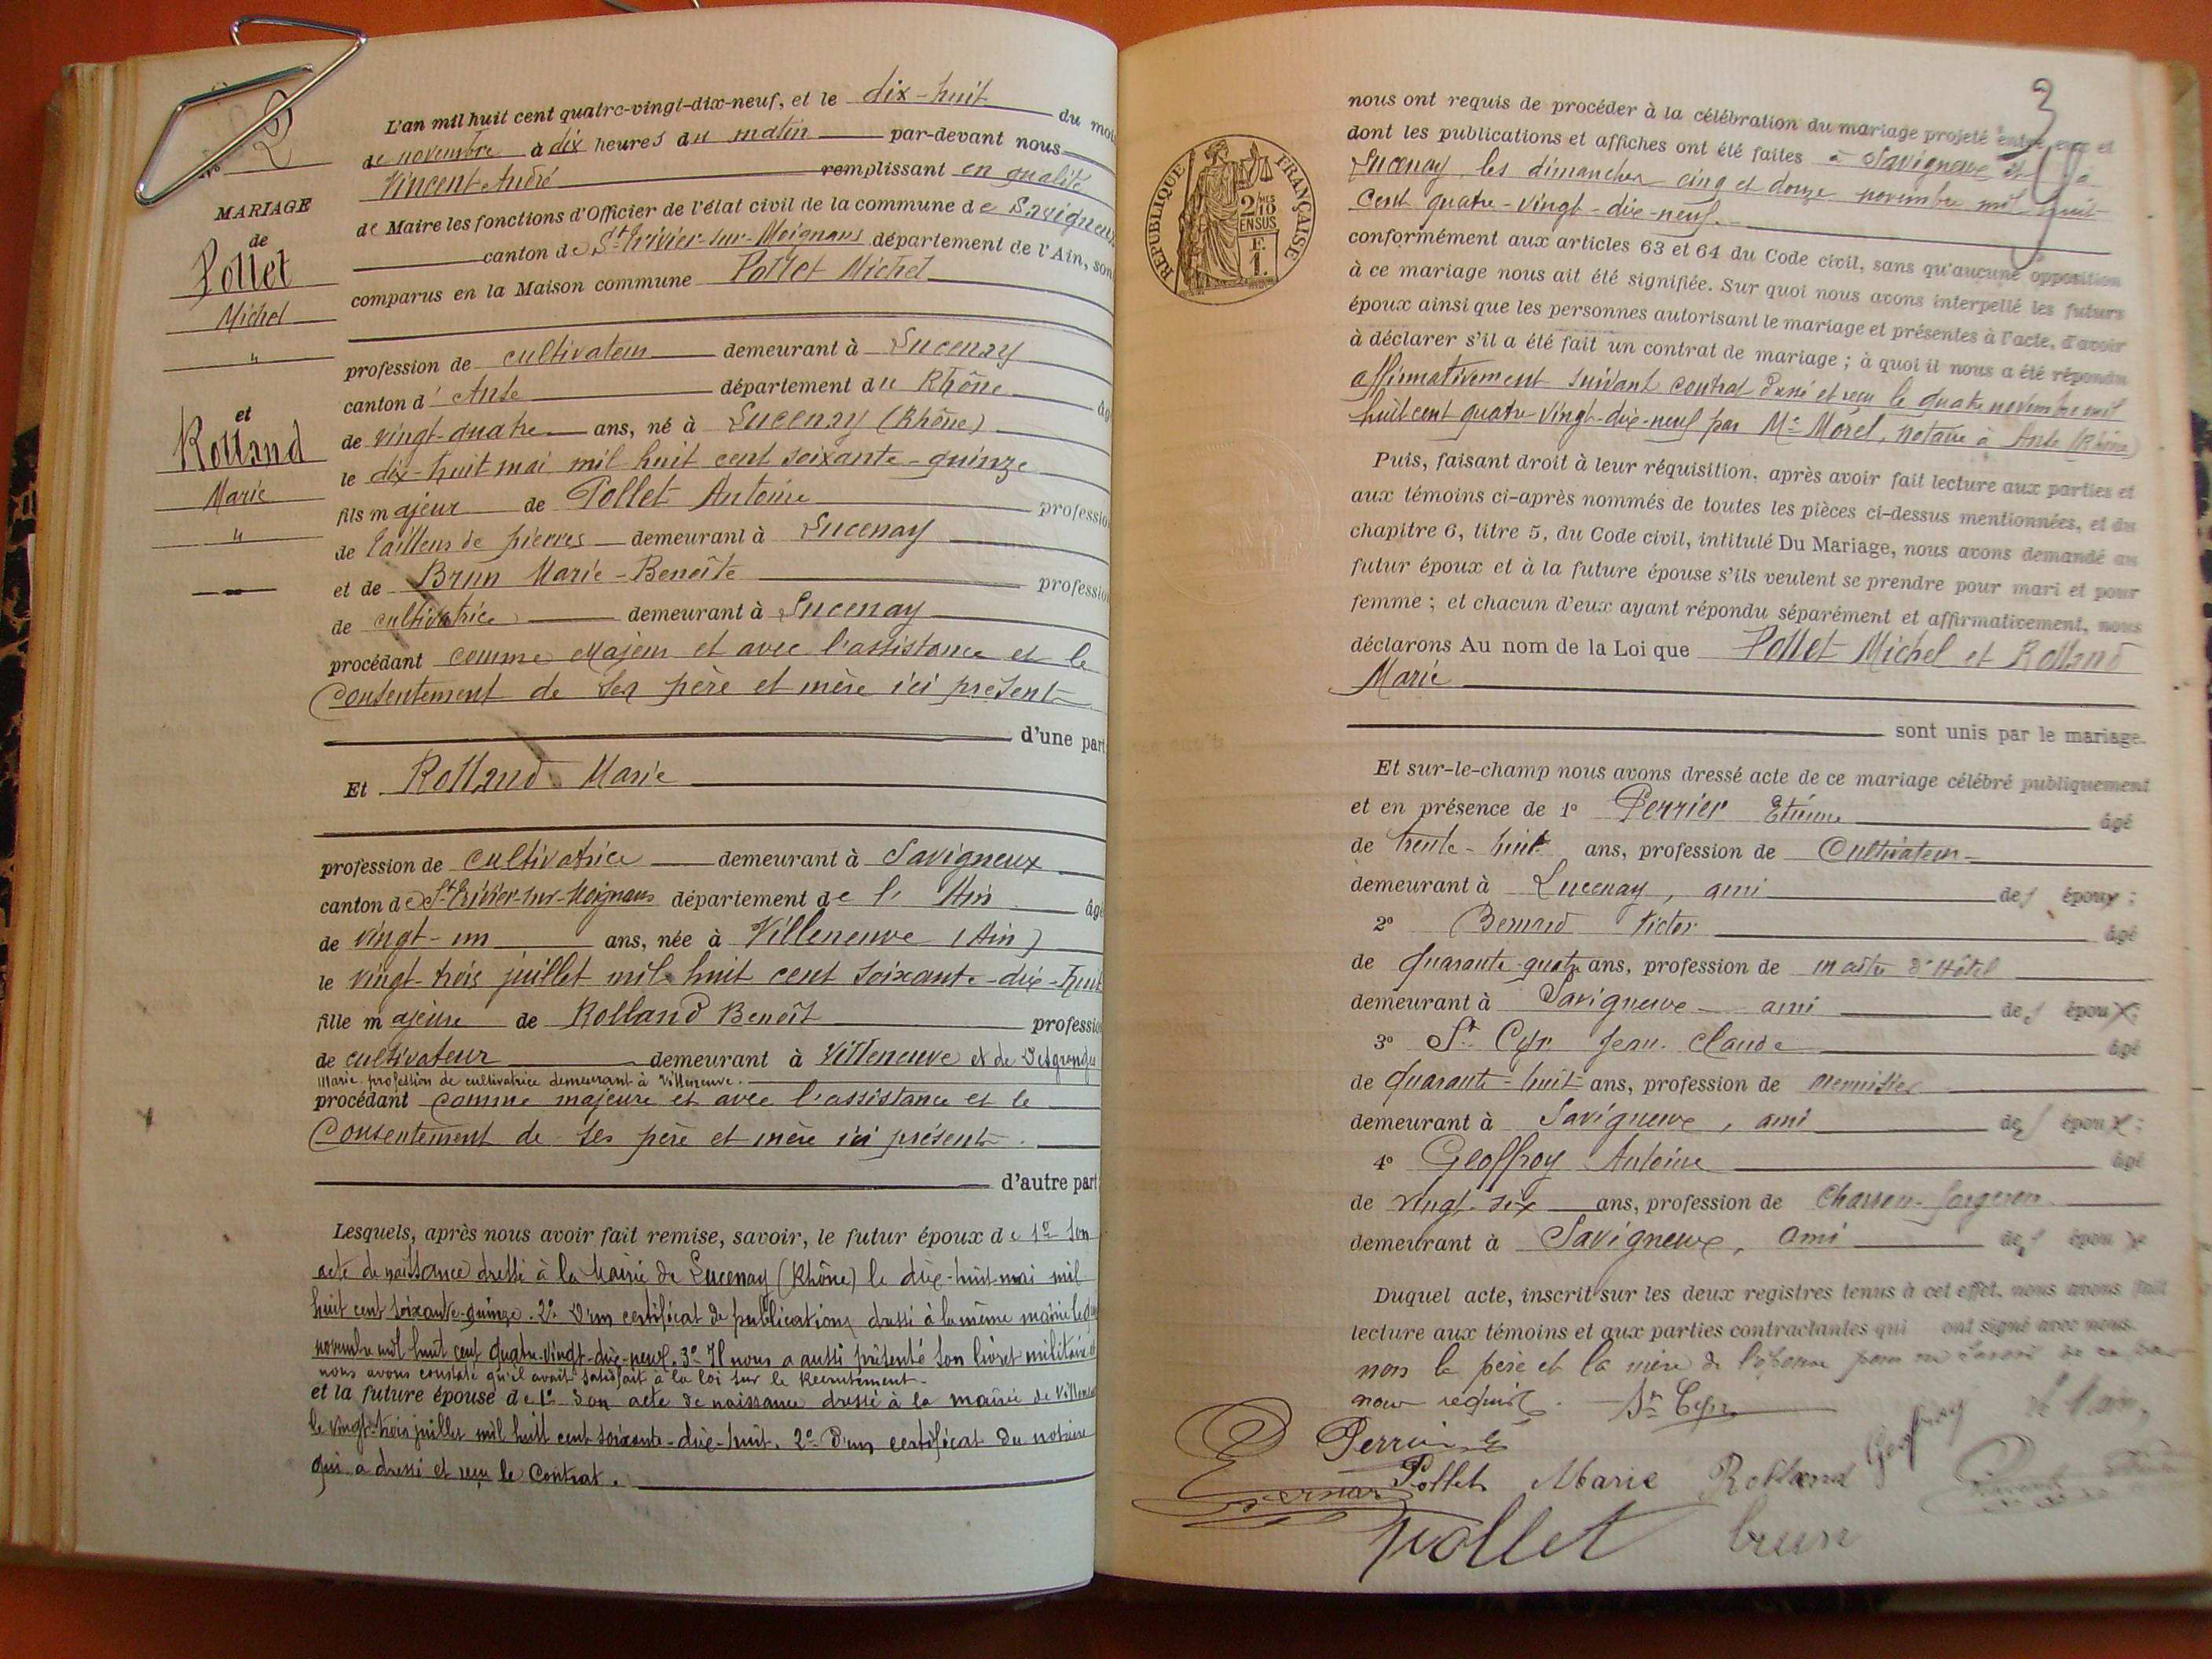 N° 2
MARIAGE
de
Pollet
Michel
"
et
Rolland
Marie
"
L'an mil huit cent quatre-vingt-dix-neuf, et le dix-huit du moi
de novembre à dix heures du matin par-devant nous
Vincent André remplissant en qualité
de Maire les fonctions d'Officier de l'état civil de la commune de Savigneux
canton de St-Trivier-sur-Moignans département de l'Ain, son
comparus en la Maison commune Pollet Michel
profession de cultivateur demeurant à Lucenay
canton d'Anse département du Rhône âg
de vingt-quatre ans, né à Lucenay (Rhône)
le dix-huit mai mil huit cent soixante-quinze
fils majeur de Pollet Antoine profession
de tailleur de pierres demeurant à Lucenay
et de Brun Marie-Benoîte profession
de cultivatrice demeurant à Lucenay
procédant comme majeur et avec l'assistance et le
consentement de ses père et mère ici présents
d'une part
Et Rolland Marie
profession de cultivatrice demeurant à Savigneux
canton de St-Trivier-sur-Moignans département de l'Ain âgé
de vingt-un ans, née à Villeneuve (Ain)
le vingt-trois juillet mil huit cent soixante-dix-huit
fille majeure de Rolland Benoît profession
de cultivateur demeurant à Villeneuve et de
Marie profession de cultivatrice demeurant à Villeneuve.
procédant comme majeure et avec l'assistance et le
consentement de ses père et mère ici présents.
d'autre part
Lesquels, après nous avoir fait remise, savoir, le futur époux de 1° son
acte de naissance dressé à la Mairie de Lucenay (Rhône) le dix-huit mai mil
huit cent soixante-quinze. 2° D'un certificat de publications dressé à la même mairie le
novembre mil huit cent quatre-vingt-dix-neuf. 3° Il nous a aussi présenté son livret militaire et
nous avons constaté qu'il avait satisfait à la loi sur le Recrutement.
et la future épouse de 1° Son acte de naissance dressé à la mairie de Villeneuve
le vingt-trois juillet mil huit cent soixante-dix-huit. 2° D'un certificat du notaire
qui a dressé et reçu le Contrat.
3
RÉPUBLIQUE FRANÇAISE
2/10
EN SUS
F.
1.
nous ont requis de procéder à la célébration du mariage projeté entre eux et
dont les publications et affiches ont été faites à Savigneux et à
Lucenay les dimanches cinq et douze novembre mil huit
cent quatre-vingt-dix-neuf.
conformément aux articles 63 et 64 du Code civil, sans qu'aucune opposition
à ce mariage nous ait été signifiée. Sur quoi nous avons interpellé les futurs
époux ainsi que les personnes autorisant le mariage et présentes à l'acte, d'avoir
à déclarer s'il a été fait un contrat de mariage ; à quoi il nous a été répondu
affirmativement suivant contrat passé et reçu le quatre novembre mil
huit cent quatre vingt-dix-neuf par Me Morel, notaire à Anse (Rhône)
Puis, faisant droit à leur réquisition, après avoir fait lecture aux parties et
aux témoins ci-après nommés de toutes les pièces ci-dessus mentionnées, et du
chapitre 6, titre 5, du Code civil, intitulé Du Mariage, nous avons demandé au
futur époux et à la future épouse s'ils veulent se prendre pour mari et pour
femme ; et chacun d'eux ayant répondu séparément et affirmativement, nous
déclarons Au nom de la Loi que Pollet Michel et Rolland
Marie
sont unis par le mariage.
Et sur-le-champ nous avons dressé acte de ce mariage célébré publiquement
et en présence de 1° Perrier Etienne âgé
de trente-huit ans, profession de Cultivateur
demeurant à Lucenay, ami des époux ;
2° Bernard Victor âgé
de quarante-quatre ans, profession de maître d'Hôtel
demeurant à Savigneux ami des époux ;
3° St Cyr Jean Claude âgé
de quarante-huit ans, profession de menuisier
demeurant à Savigneux, ami des époux ;
4° Geoffroy Antoine âgé
de vingt-six ans, profession de Charron-forgeron
demeurant à Savigneux, ami des époux
Duquel acte, inscrit sur les deux registres tenus à cet effet, nous avons fait
lecture aux témoins et aux parties contractantes qui ont signé avec nous.
non le père et la mère de l'épouse pour ne savoir de ce
nous requis. St Cyr
Le Maire,
Perrier Geoffroy
Pollet Marie Rolland
Bernard
Pollet brun